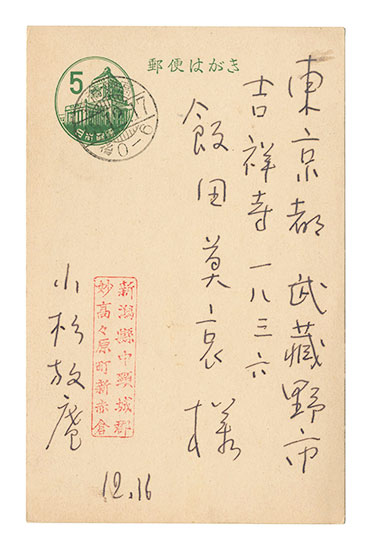 郵便はがき
5
東京都 武蔵野市
吉祥寺 一八三六
飯田莫哀様
新潟縣中頸城郡
妙高々原町新赤倉
小杉放庵
12.16